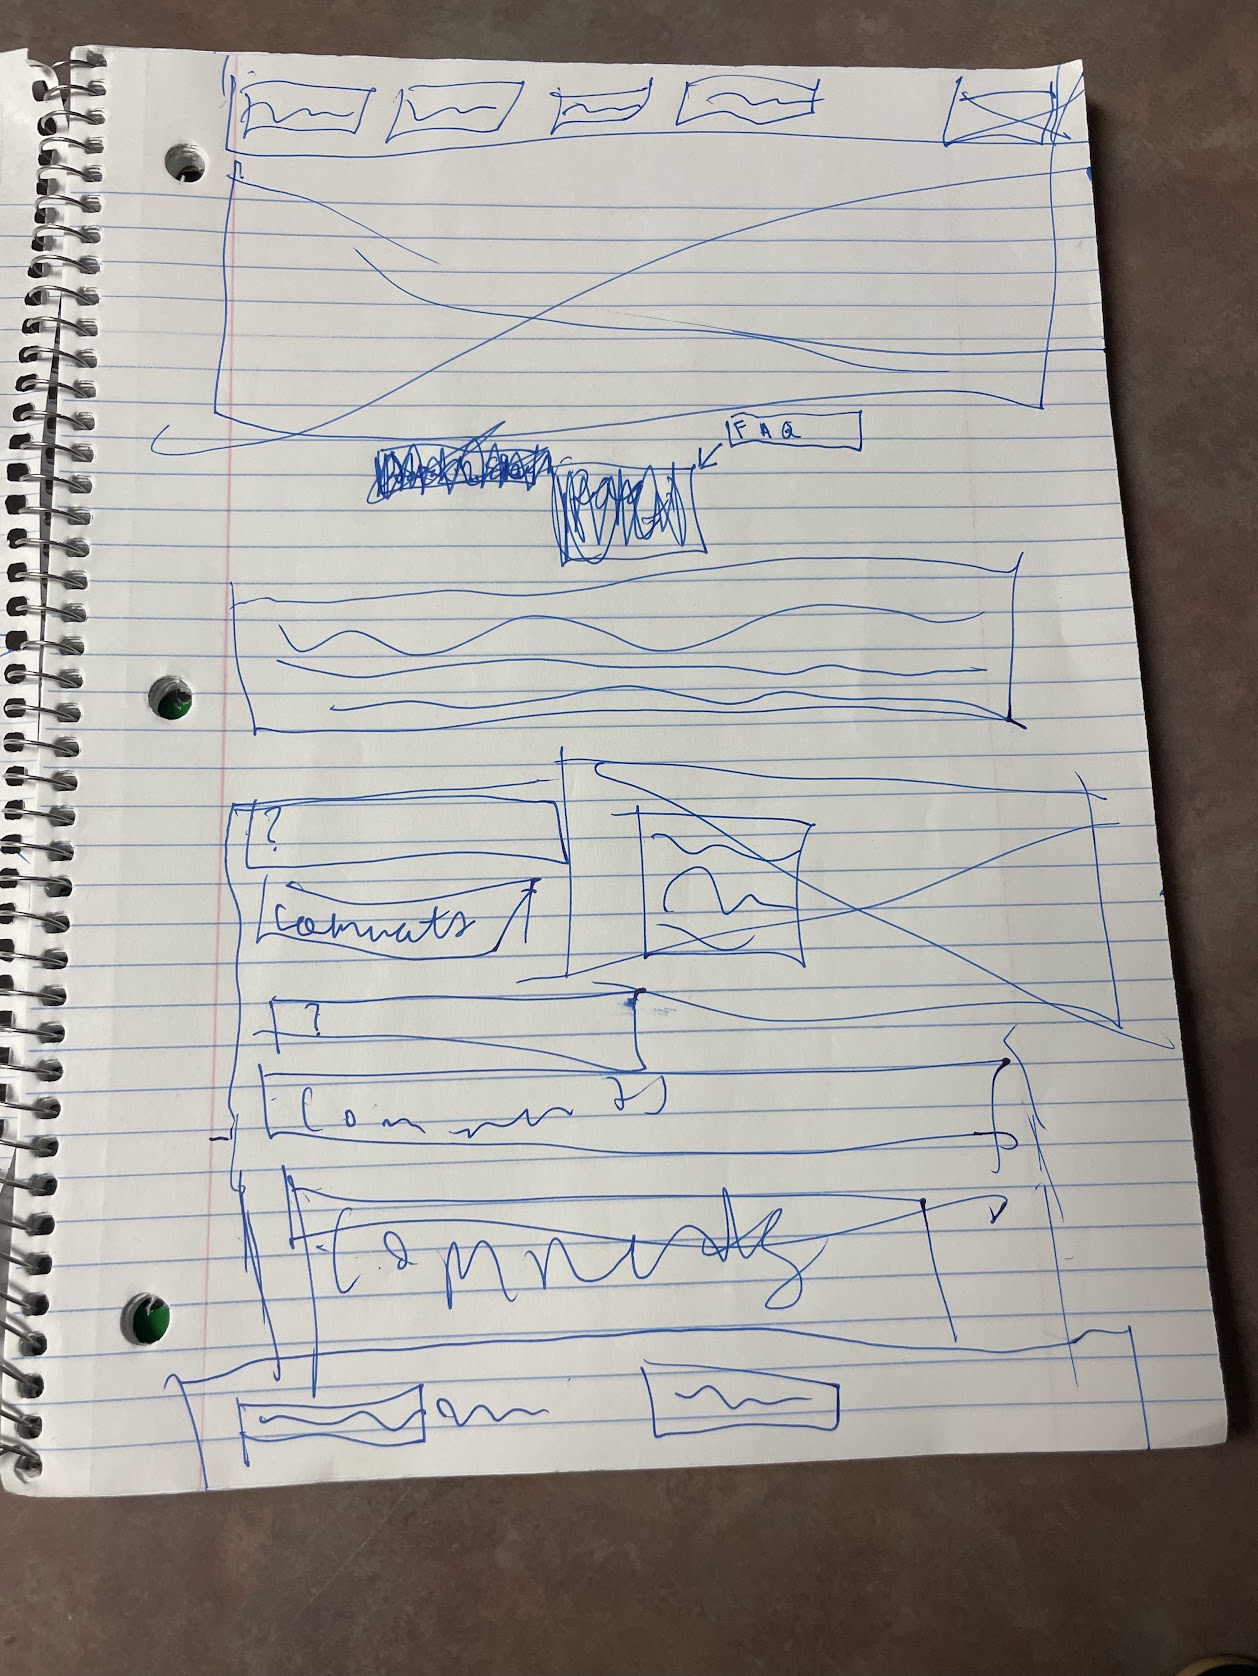 FAQ
?
Comments
?
Comments
Comments